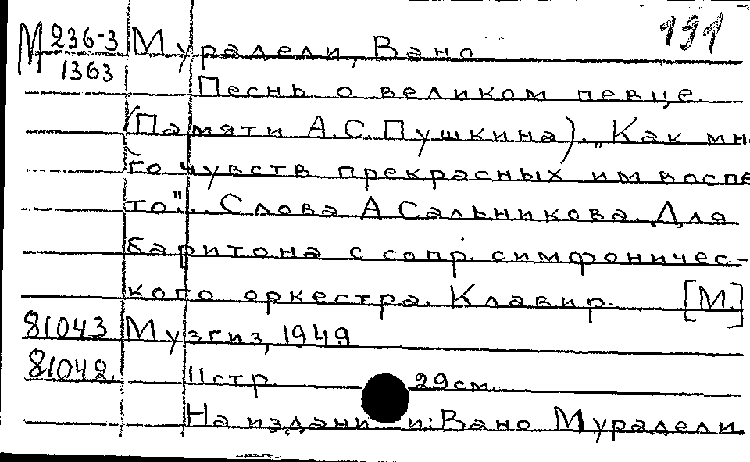 191
М 236-3 Мурадели, Вано
1363
Песнь о великом певце.
(Памяти А.С.Пушкина). "Как мно
го чувств прекрасных им воспе
то"... Слова А Сальникова. Для
баритона с сопр. симфоничес-
кого оркестра. Клавир. [М.]
81043 Музгиз, 1949
81042 11стр. 29см.
На издани и: Вано Мурадели.